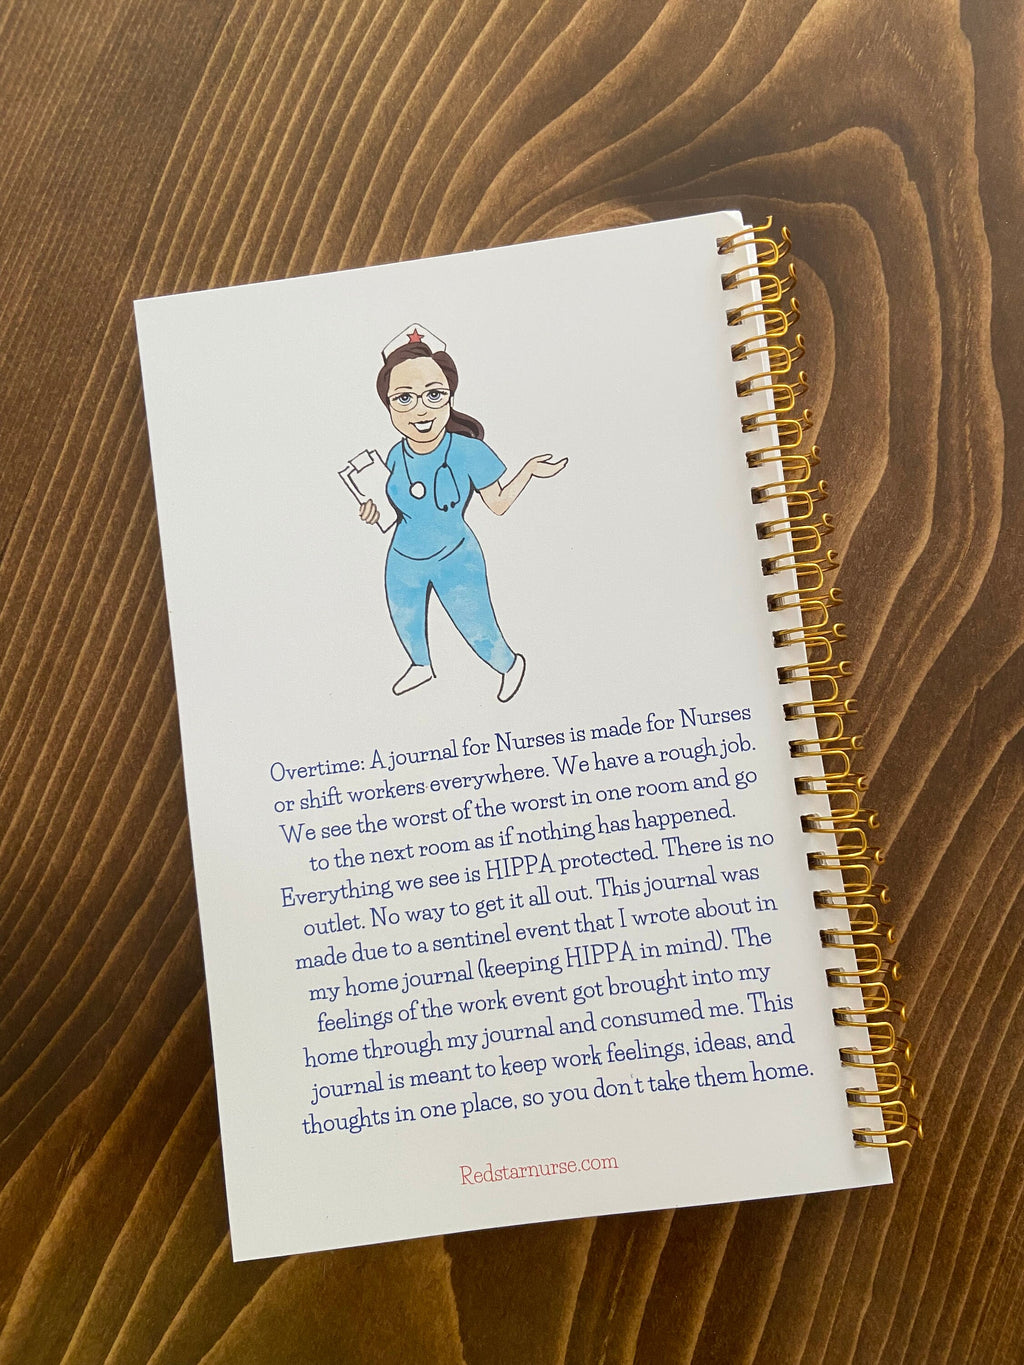 Overtime: A journal for Nurses is made for Nurses
or shift workers everywhere. We have a rough job.
We see the worst of the worst in one room and go
to the next room as if nothing has happened.
Everything we see is HIPPA protected. There is no
outlet. No way to get it all out. This journal was
made due to a sentinel event that I wrote about in
my home journal (keeping HIPPA in mind). The
feelings of the work event got brought into my
home through my journal and consumed me. This
journal is meant to keep work feelings, ideas, and
thoughts in one place, so you don't take them home.
Redstarnurse.com